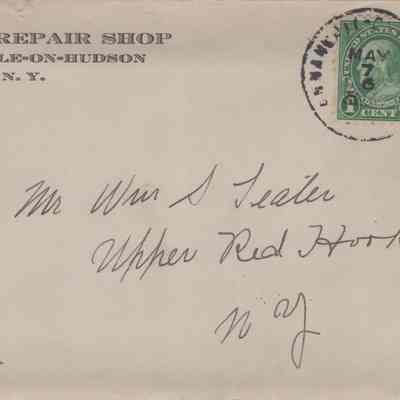 REPAIR SHOP
LE-ON-HUDSON
N. Y.
MAY
7
1 CENT
Mr Wm S Teator
Upper Red Hook
N Y